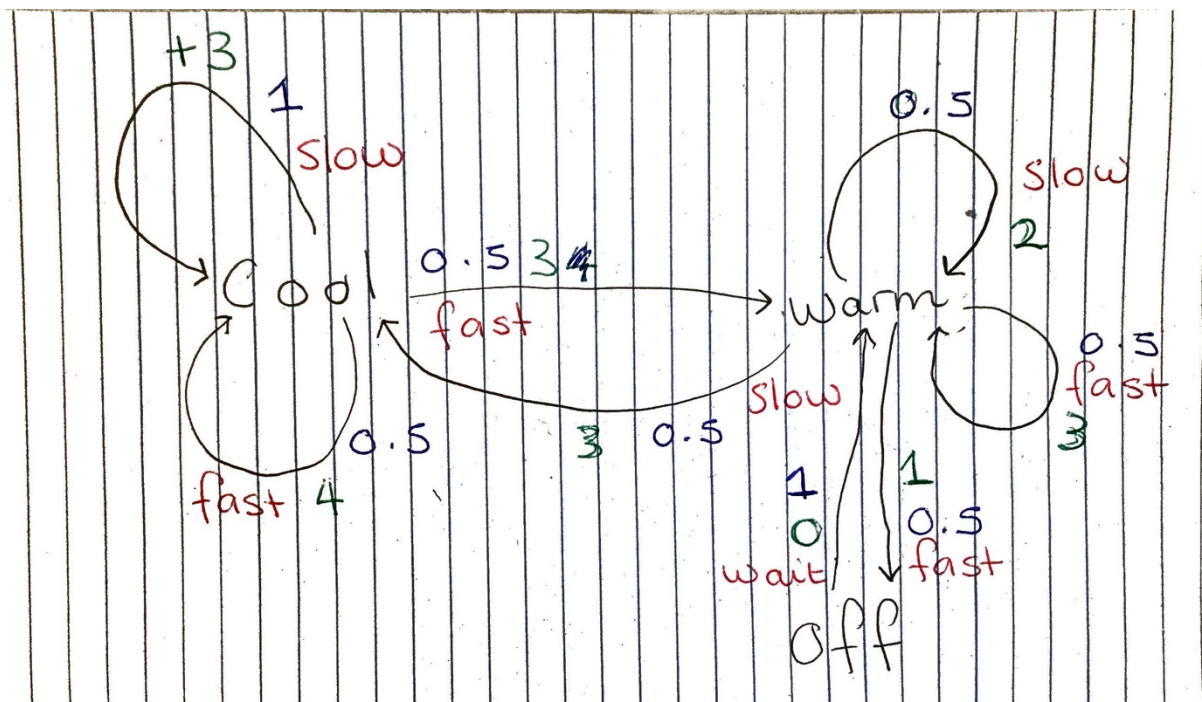 +3
1
slow
0.5
slow
2
Cool
0.5 3
fast
warm
0.5
fast
3
slow
3
0.5
0.5
fast 4
1
0
wait
1
0.5
fast
Off